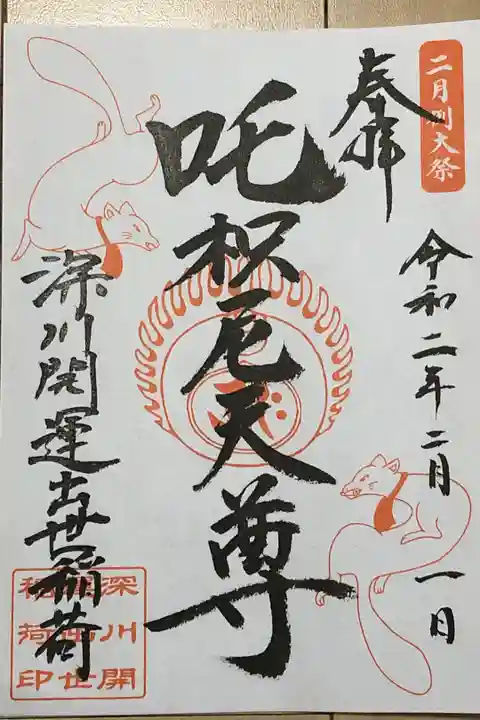 二月例大祭
奉拝
令和二年二月一日
吒枳尼天尊
深川開運出世稲荷
深川開
運出世
稲荷印